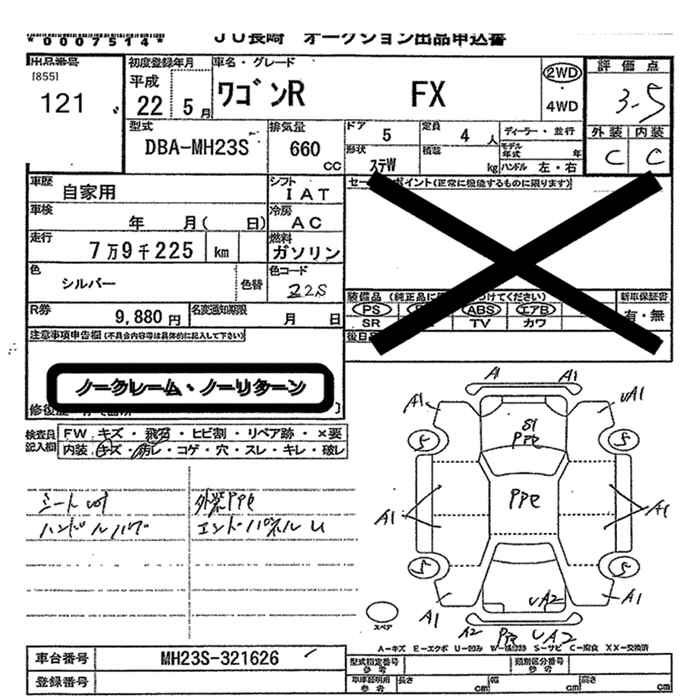 *0007514* JU長崎 オークション出品申込書
出品番号 初度登録年月 車名・グレード 評価点
[855] 平成 2WD
121 22 5月 ワゴンR FX 4WD 3-5
型式 排気量 ドア 5 定員 4人 ディーラー・並行 外装 内装
DBA-MH23S 660 CC 形状 ステW 積載 kg モデル年式 年 C C
ハンドル 左・右
車歴 自家用 シフト IAT セールスポイント(正常に機能するものに限ります)
車検 年 月( 日) 冷房 AC
走行 7万9千225 km 燃料 ガソリン
色 シルバー 色替 色コード Z2S
装備品 新車保証書
R券 9,880円 名変通知期限 月 日 PS ABS エアB 有・無
SR TV カワ
注意事項申告欄(不具合内容等は具体的に記入して下さい)
ノークレーム・ノーリターン
検査員 FW キズ・飛石・ヒビ割・リペア跡・×要
記入欄 内装 キズ・汚レ・コゲ・穴・スレ・キレ・破レ
シート 外装PPE
エンドパネルU
A1 A1
A1 UA1
S S
S1
PPE
PPE
A1 A1
S S
A1 UA2 A1
スペア A2 PPE UA2
A-キズ E-エクボ U-凹み W-補修跡 S-サビ C-腐食 XX-交換済
車台番号 MH23S-321626 型式指定番号 参考 類別区分番号 参考
登録番号 車庫証明用 参考 長さ cm 幅 cm 高さ cm